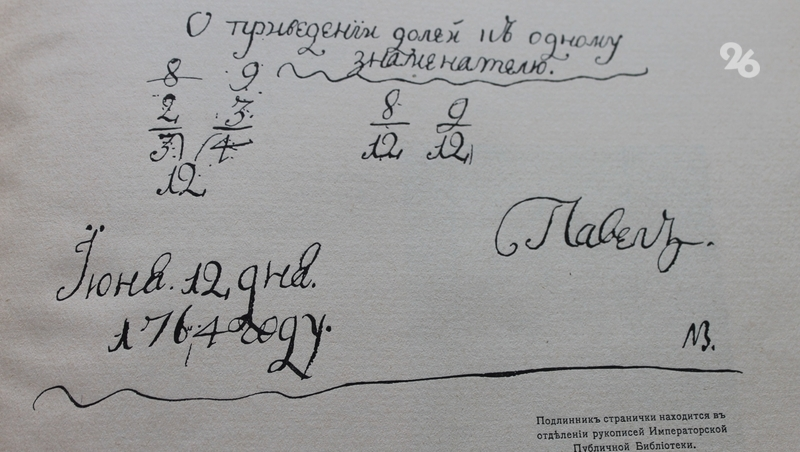 О приведенїи долей къ одному
знаменателю.
26
8 9
2 3
3 4
12
8 9
12 12
Павелъ.
Їюня. 12 дня.
1764 году.
Подлинникъ странички находится въ
отдѣленіи рукописей Императорской
Публичной Библіотеки.